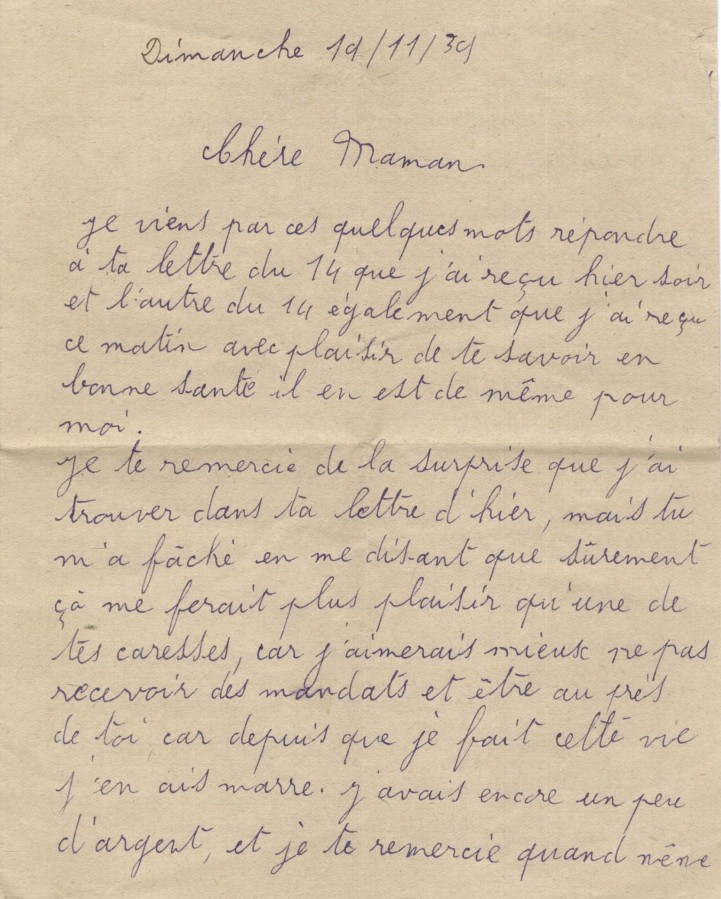 Dimanche 19/11/39
Chère Maman.
je viens par ces quelques mots répondre
à ta lettre du 14 que j'ai reçu hier soir
et l'autre du 14 également que j'ai reçu
ce matin avec plaisir de te savoir en
bonne santé il en est de même pour
moi.
Je te remercie de la surprise que j'ai
trouver dans ta lettre d'hier, mais tu
m'a fâché en me disant que sûrement
çà me ferait plus plaisir qu'une de
tes caresses, car j'aimerais mieux ne pas
recevoir des mandats et être au près
de toi car depuis que je fait cette vie
j'en ais marre. j'avais encore un peu
d'argent, et je te remercie quand nême